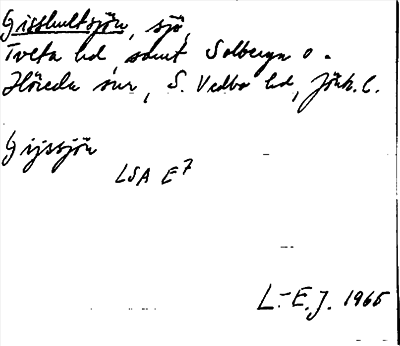 Gisshultsjön, sjö,
Tveta hd, samt Solberga o.
Höreda snr, S. Vedbo hd, Jönk. l.
Gijssjön
LSA E7
L.-E.J. 1965